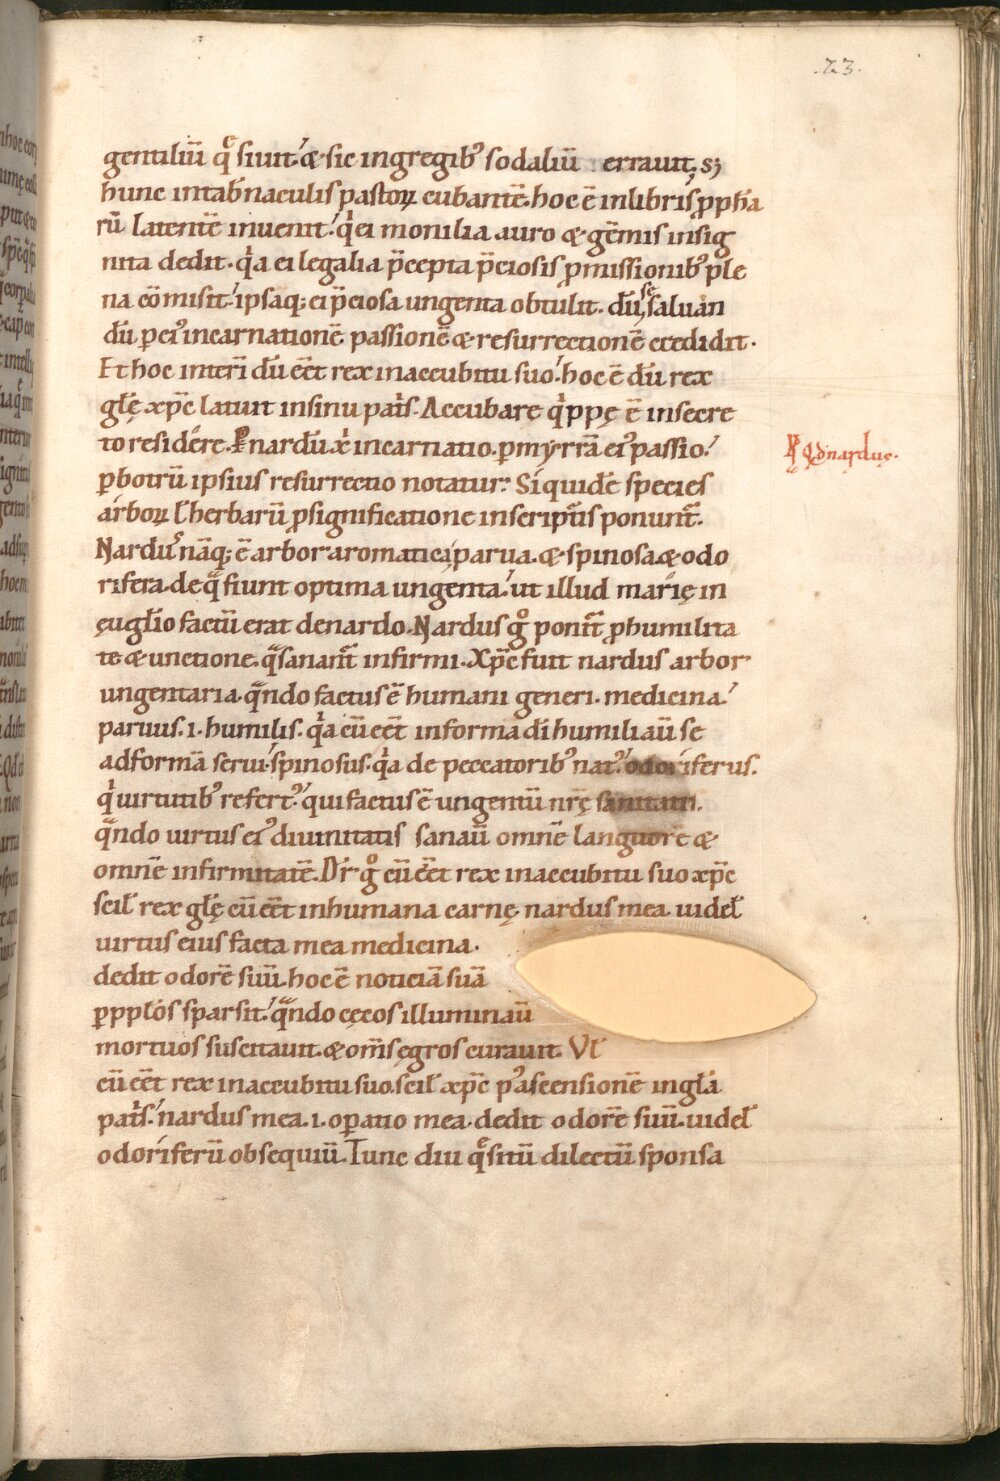 .23.
gentiliū q̄siuit. & sic in gregib; sodaliū errauit, s;
hunc in tab̄naculis pastoꝝ cubantē. hoc ē in libris ꝓpha
rū latentē inuenit. q̇ ei monilia auro & gēmis insig
nita dedit. q̇a ei legalia p̄cepta p̄ciosis ꝓmissionib; ple
na cōmisit. ipsaq; ei p̄ciosa ungenta obtulit. dū se saluan
dū ꝑ ei' incarnationē passionē & resurrectionē c̄cedidit.
Et hoc interī dū eēt rex in accubitu suo. hoc ē dū rex
glę xp̄c latuit in sinu pat̄s. Accubare q̇ppę ē in secre
to residere. P nardū xp̄i incarnatio. ꝑ myrrā ei' passio.
ꝑ botrū ipsius resurrectio notatur. Siquidē species
arboꝝ ł herbarū ꝓ significatione in scripturis ponunt̄.
Nard' nāq; ē arbor aromatica parua. & spinosa & odo
rifera. de q̄ fiunt optima ungenta. ut illud marię in
ęuglio factū erat de nardo. Nardus gͦ ponit̄ ꝓ humilita
te & unctione. q̄ sanant̄ infirmi. Xp̄c fuit nardus arbor
ungentaria. q̄ndo factus ē humani generi. medicina.
paruus. i. humilis. q̇a cū eēt in forma dī humiliauit se
ad formā serui. spinosus. q̇a de peccatorib; nat'. odoriferus.
q̇ uirtutib; refert'. qui factus ē ungentū nr̄ę sanitati.
q̄ndo uirtus ei' diuinitatis sanauit omnē languorē &
omnē infirmitatē. Dr̄ gͦ cū eēt rex in accubitu suo xp̄c
scil rex glę cū eēt in humana carnę. nardus mea. uideł
uirtus eius facta mea medicina.
dedit odorē suū. hoc ē noticiā suā
ꝑ ppłos sparsit. q̄ndo cęcos illuminauit
mortuos suscitauit. & om̄s ęgros curauit. Vł
cū eēt rex in accubitu suo. scil xp̄c p' ascensionē in głā
pat̄s. nardus mea. i. oꝑatio mea. dedit odorē suū. uideł
odoriferū obsequiū. Tunc diu q̄sitū dilectū sponsa